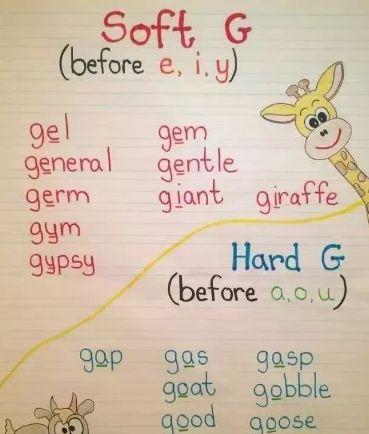 Soft G
(before e, i, y)
gel gem
general gentle
germ giant giraffe
gym
gypsy
Hard G
(before a, o, u)
gap gas gasp
goat gobble
good goose